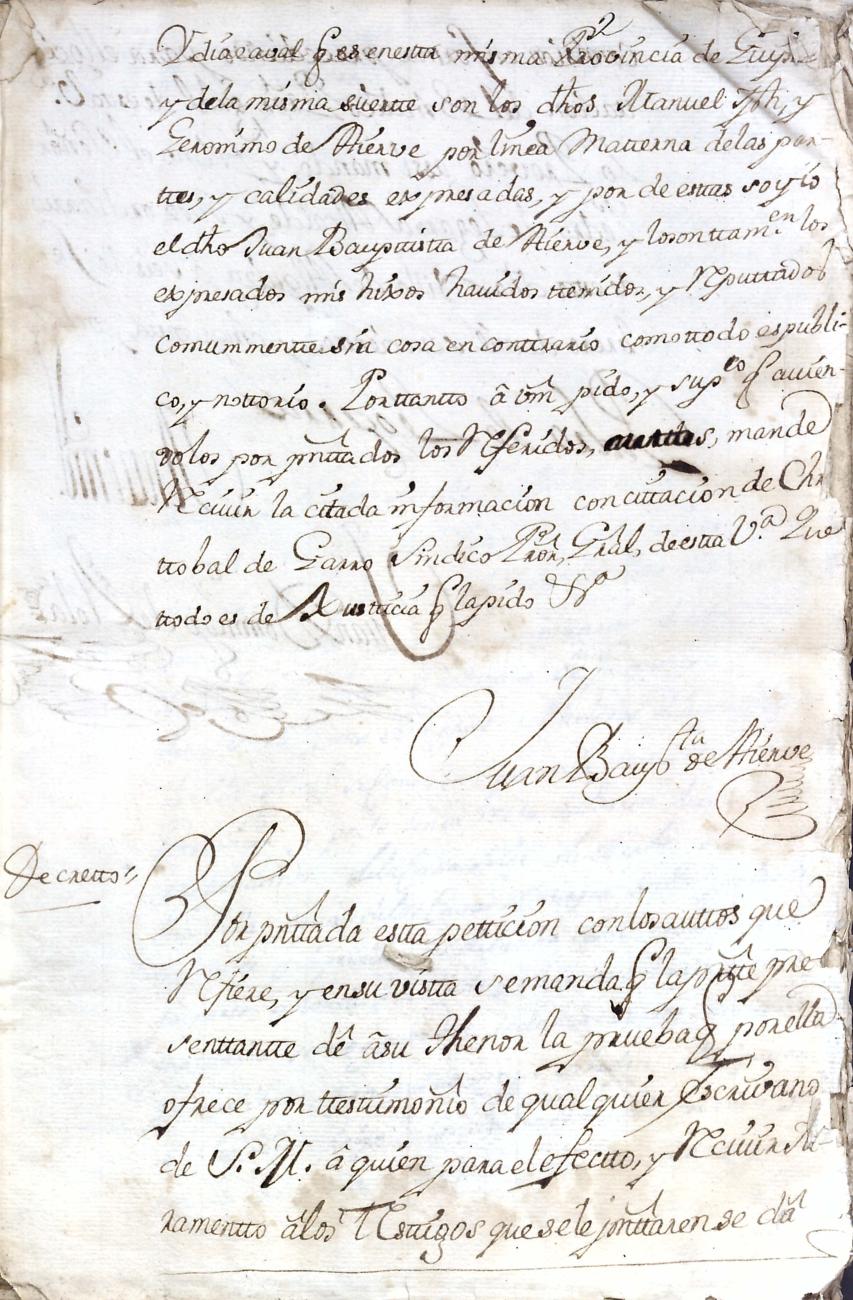 Vdiaeaval q̃ es enestta misma Provincia de Guip-
y dela misma suertte son los dhos Manuel Jph, y
Geronimo de Hierve por linea Matterna delas par-
ttes, y calidades expresadas, y por de esttas soy io
el dho Juan Bauptista de Hierve, y losonttamen los
expresados mis hixos havidos ttenidos, y Reputtados
comummentte sin cosa en conttrario como ttodo es publi-
co, y nottorio. Porttantto â Vm pido, y supco q̃ havien-
dolos por pnttados los Referidos, auttos, mande
Recivir la cittada informacion con cittacion de Chris
ttobal de Garro Sindico Pror, Gral, de estta Va. Que
ttodo es de Justticia q̃ la pido &a
Juan Baupta de Hierve
Decretto,,
Por pnttada estta petticion con los auttos que
Refiere, y en su vistta se manda q̃ la partte pre
senttantte dê â su thenor la prueba q̃ por ella
ofrece por ttesttimonio de qualquier Escrivano
de S. M. â quien para el efectto, y Recivir Ju-
ramentto â los Testtigos que se le pnttaren se dâ